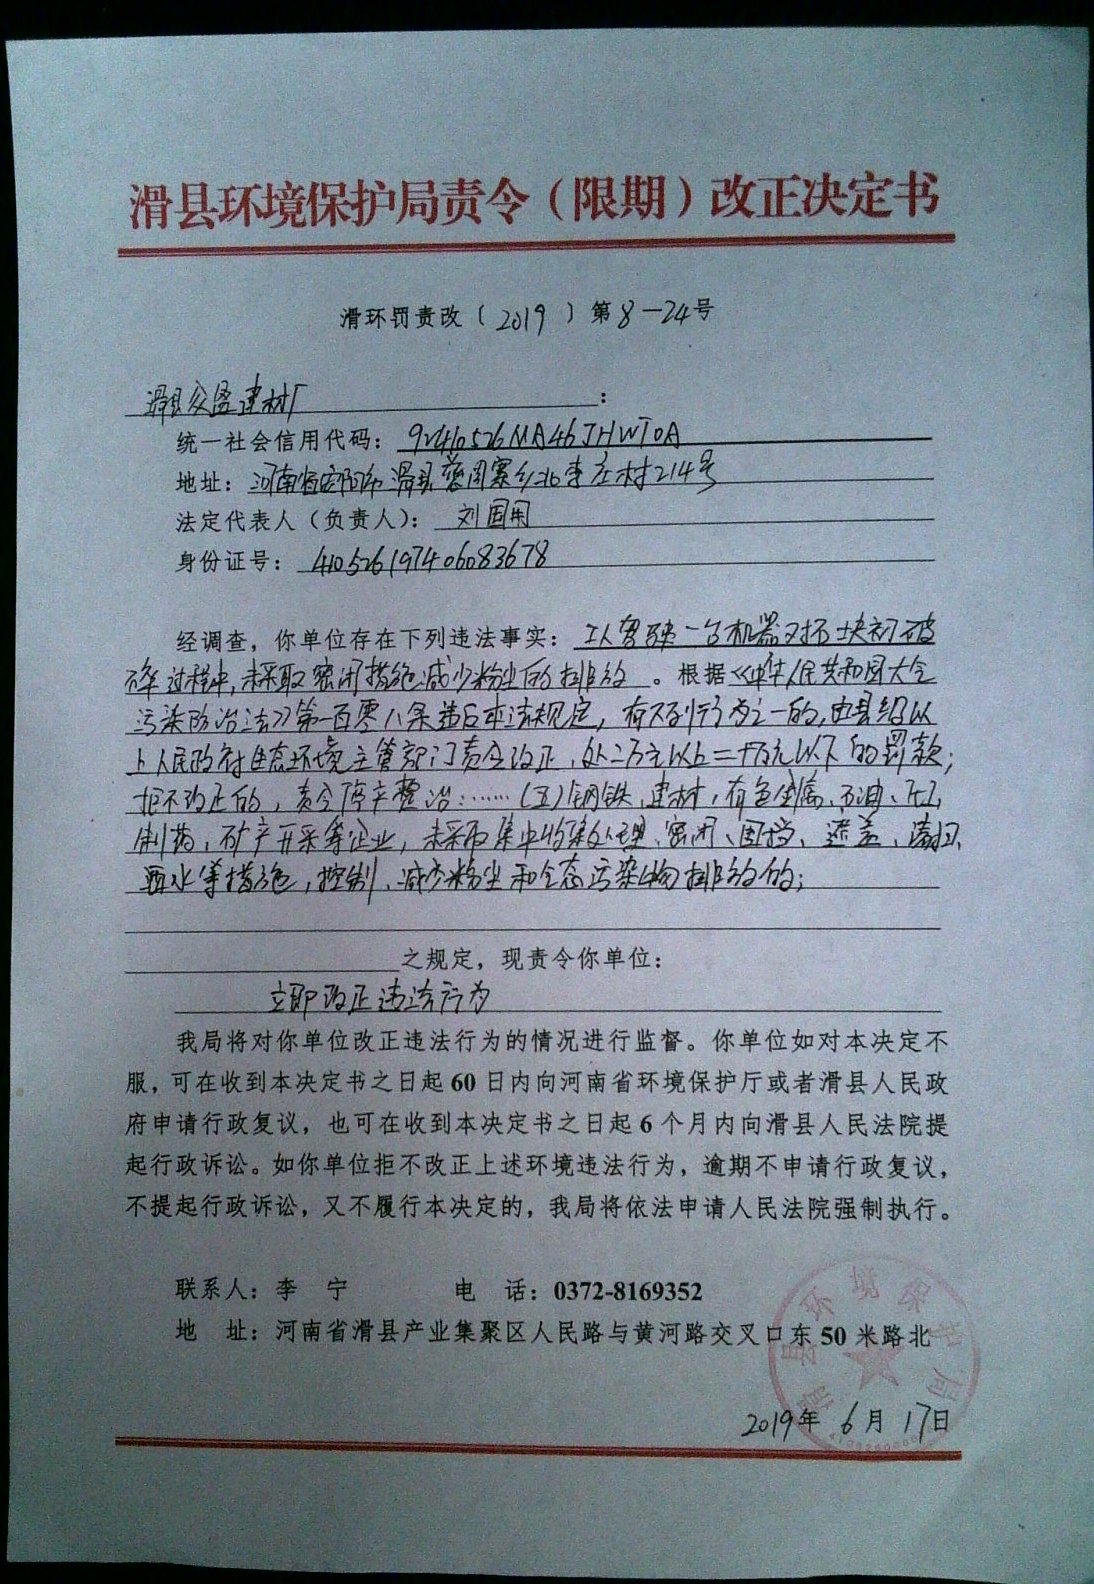 滑县环境保护局责令（限期）改正决定书
滑环罚责改〔2019〕第8-24号
滑县众盈建材厂：
统一社会信用代码：92410526MA46JHWT0A
地址：河南省安阳市滑县慈周寨乡北李庄村214号
法定代表人（负责人）：刘国用
身份证号：410526197406083678
经调查，你单位存在下列违法事实：工人驾驶一台机器对石块初破
碎过程中，未采取密闭措施减少粉尘的排放。根据《中华人民共和国大气
污染防治法》第一百零八条违反本法规定，有下列行为之一的，由县级以
上人民政府生态环境主管部门责令改正，处二万元以上二十万元以下的罚款；
拒不改正的，责令停产整治：……（五）钢铁、建材、有色金属、石油、化工、
制药、矿产开采等企业，未采取集中收集处理、密闭、围挡、遮盖、清扫、
洒水等措施，控制、减少粉尘和气态污染物排放的；
之规定，现责令你单位：
立即改正违法行为
我局将对你单位改正违法行为的情况进行监督。你单位如对本决定不
服，可在收到本决定书之日起60日内向河南省环境保护厅或者滑县人民政
府申请行政复议，也可在收到本决定书之日起6个月内向滑县人民法院提
起行政诉讼。如你单位拒不改正上述环境违法行为，逾期不申请行政复议，
不提起行政诉讼，又不履行本决定的，我局将依法申请人民法院强制执行。
联系人：李 宁 电 话：0372-8169352
地 址：河南省滑县产业集聚区人民路与黄河路交叉口东50米路北
滑县环境保护局
2019年6月17日